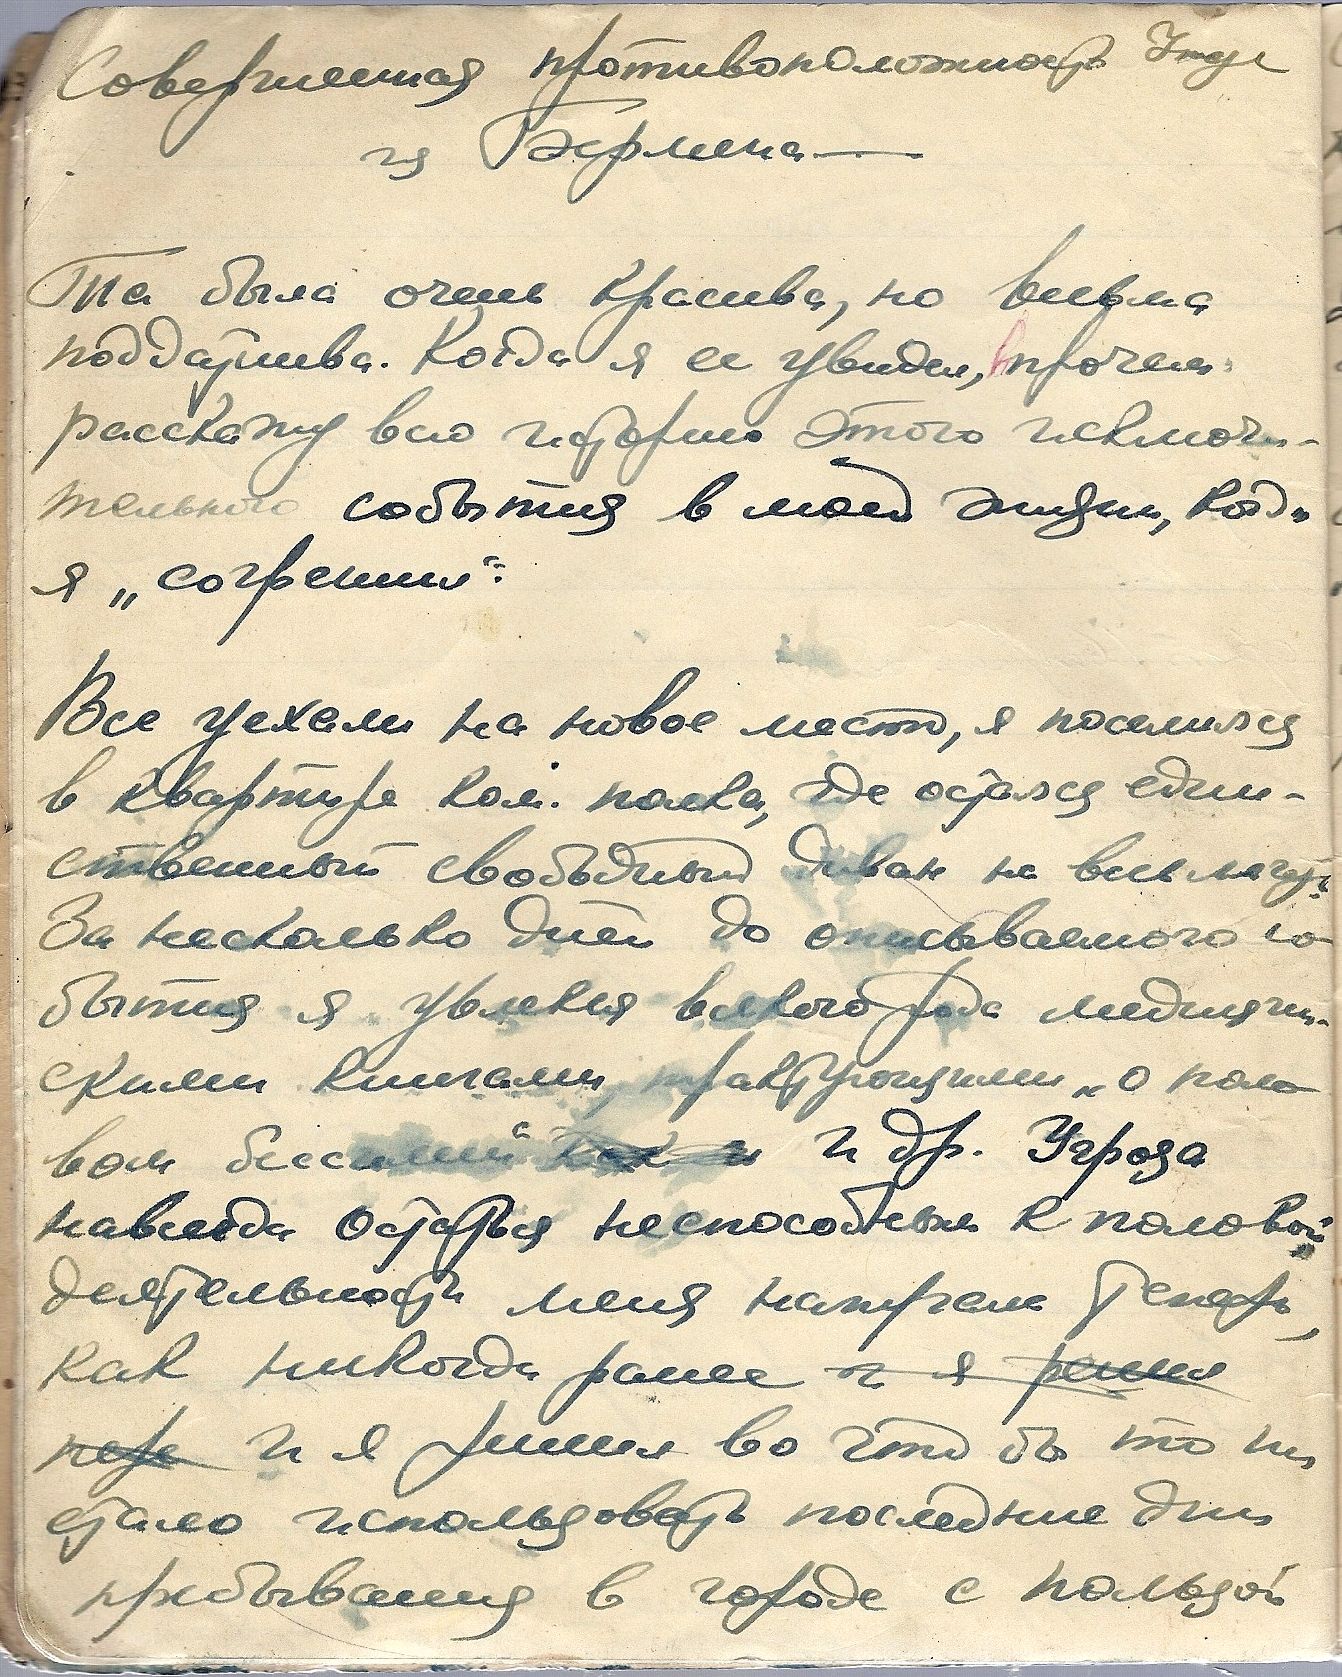 Совершенная противоположность
из Берлина —
Та была очень красива, но весьма
поддатлива. Когда я ее увидел, впрочем
расскажу всю историю этого исключи-
тельного события в моей жизни, когда
я „согрешил“:
Все уехали на новое место, я поселился
в квартире ком. полка, где остался един-
ственный свободный диван на весь
За несколько дней до описываемого со-
бытия я увлекся всякого рода медицин-
скими книгами, трактующими „о поло-
вом бессилии“ и др. Угроза
навсегда остаться неспособным к половой
деятельности меня напугала теперь,
как никогда ранее и я решил
пере и я решил во что бы то ни
стало использовать последние дни
пребывания в городе с пользой